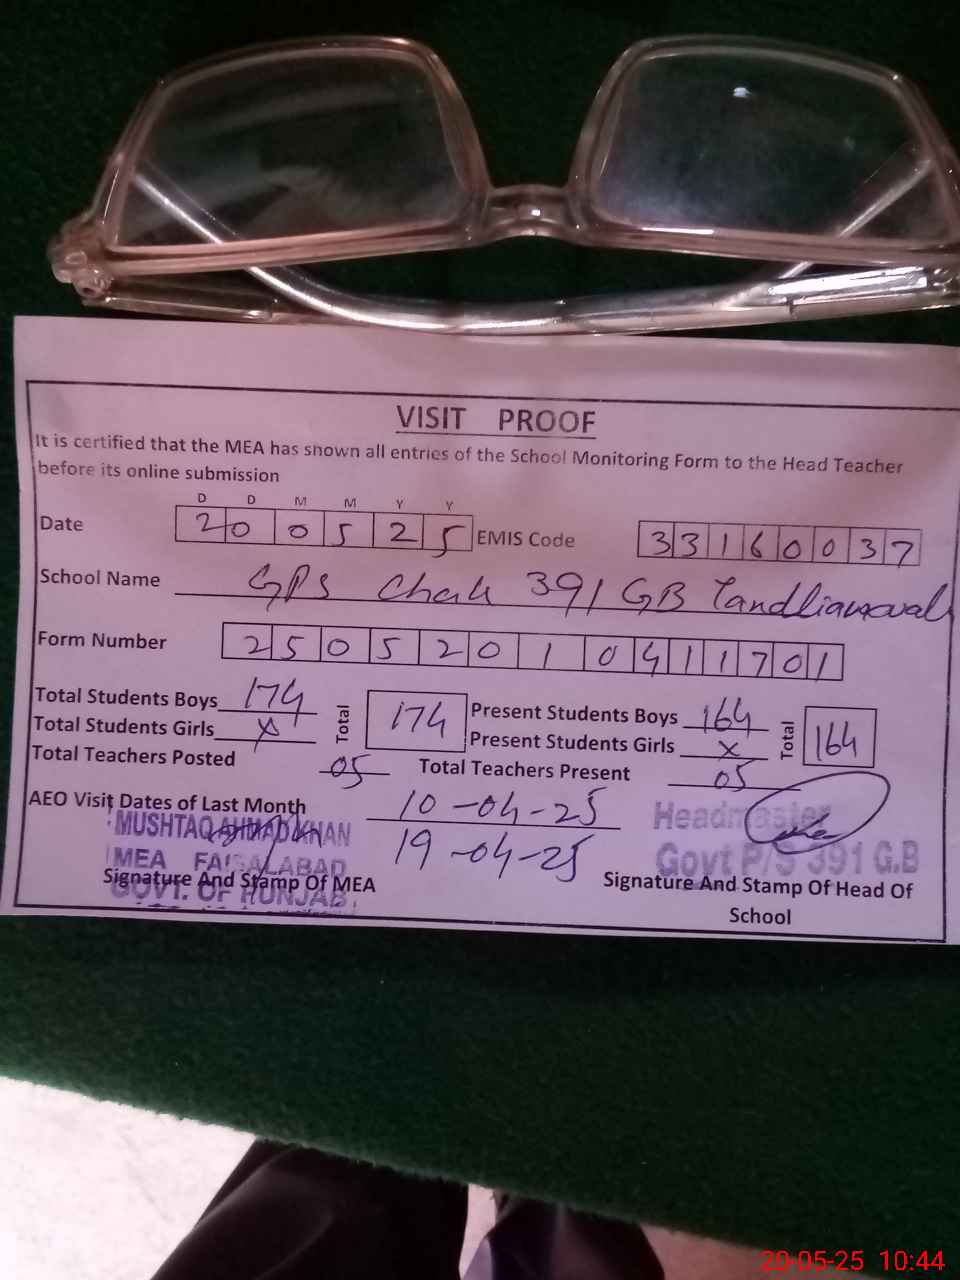 VISIT PROOF
It is certified that the MEA has shown all entries of the School Monitoring Form to the Head Teacher
before its online submission
D D M M Y Y
Date 2 0 0 5 2 5 EMIS Code 3 3 1 6 0 0 3 7
School Name GPS Chak 391 GB Tandlianwala
Form Number 2 5 0 5 2 0 1 0 4 1 1 7 0 1
Total Students Boys 174 Total 174 Present Students Boys 164 Total 164
Total Students Girls x Present Students Girls x
Total Teachers Posted 05 Total Teachers Present 05
AEO Visit Dates of Last Month 10-04-25
19-04-25
MUSHTAQ AHMAD KHAN
MEA FAISALABAD
GOVT. OF PUNJAB
Signature And Stamp Of MEA
Headmaster
Govt P/S 391 G.B
Signature And Stamp Of Head Of
School
20-05-25 10:44